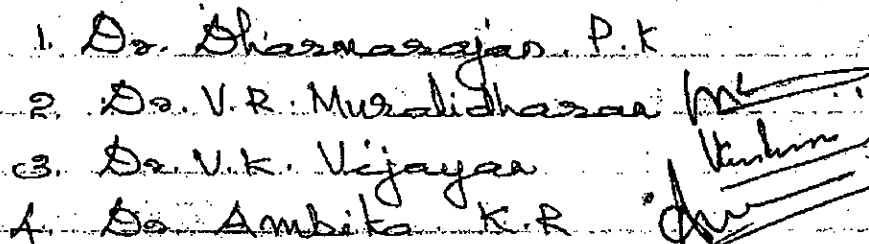 1. Dr. Dharmarajan. P.K
2. Dr. V.R. Muralidharan
3. Dr. V.K. Vijayan
4. Dr Ambika K.R